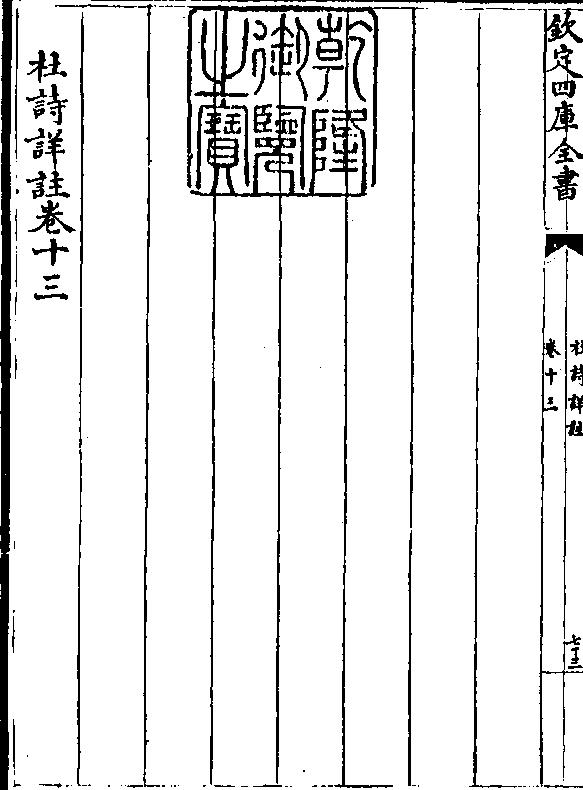 欽定四庫全書
杜詩詳註
卷十三
乾隆
御覽
之寶
杜詩詳註卷十三